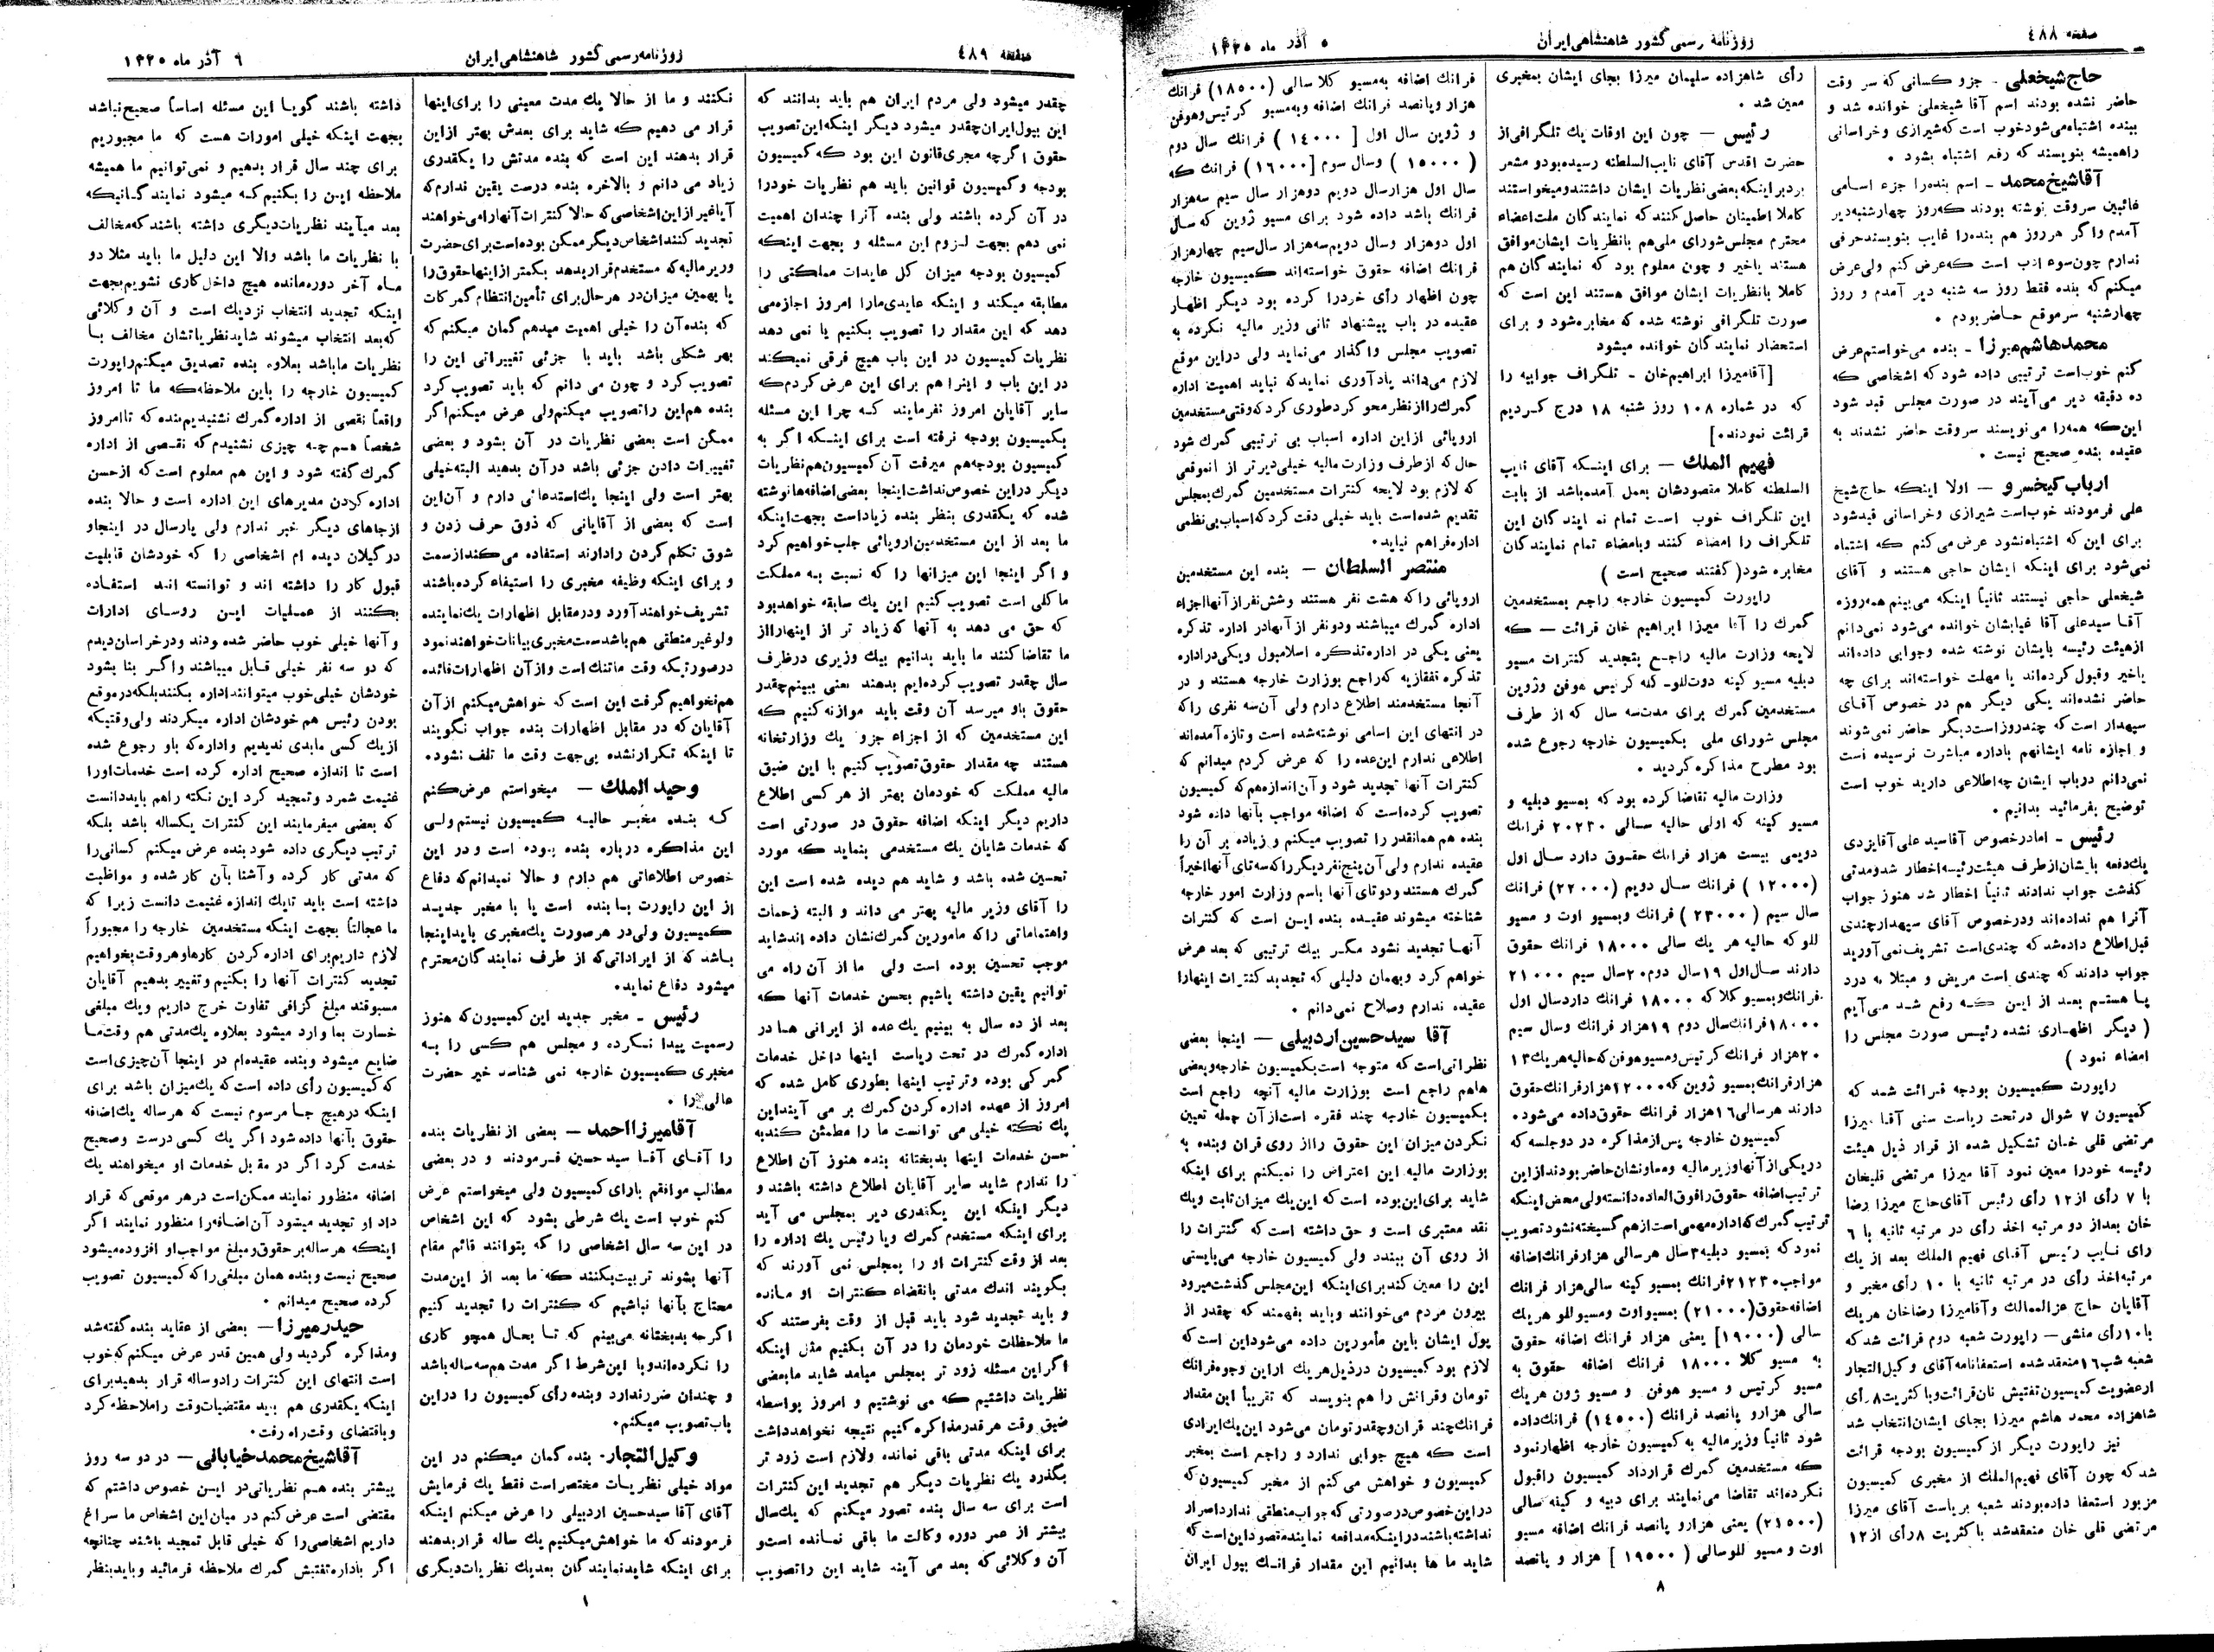 صفحه ٤٨٨
روزنامه رسمی کشور شاهنشاهی ایران
حاج شیخعلی ـ جزو کسانی که سر وقت
حاضر نشده بودند اسم آقا شیخعلی خوانده شد و
ببنده اشتباه می‌شود خوب است که شیرازی و خراسانی
راهمیشه بنویسند که رفع اشتباه بشود .
آقا شیخ محمد ـ اسم بنده را جزء اسامی
غائبین سر وقت نوشته بودند که روز چهارشنبه دیر
آمدم واگر هر روز هم بنده را غایب بنویسند حرفی
ندارم چون سوء ادب است که عرض کنم ولی عرض
میکنم که بنده فقط روز سه شنبه دیر آمدم و روز
چهارشنبه سر موقع حاضر بودم .
محمد هاشم میرزا ـ بنده می‌خواستم عرض
کنم خوب است ترتیبی داده شود که اشخاصی که
ده دقیقه دیر می‌آیند در صورت مجلس قید شود
این که همه را می نویسند سر وقت حاضر نشدند به
عقیده بنده صحیح نیست .
ارباب کیخسرو — اولا اینکه حاج شیخ
علی فرمودند خوب است شیرازی و خراسانی قید شود
برای این که اشتباه نشود عرض می کنم که اشتباه
نمی‌شود برای اینکه ایشان حاجی هستند و آقای
شیخعلی حاجی نیستند ثانیاً اینکه می بینم همه روزه
آقا سید علی آقا غیابشان خوانده می‌شود نمی‌دانم
از هیئت رئیسه بایشان نوشته شده و جوابی داده‌اند
یاخیر وقبول کرده‌اند یا مهلت خواسته‌اند برای چه
حاضر نشده‌اند یکی دیگر هم در خصوص آقای
سپهدار است که چند روز است دیگر حاضر نمی شوند
و اجازه نامه ایشانهم باداره مباشرت نرسیده است
نمی‌دانم در باب ایشان چه اطلاعی دارید خوب است
توضیح بفرمائید بدانیم .
رئیس ـ اما در خصوص آقا سید علی آقا یزدی
یك دفعه بایشان از طرف هیئت رئیسه اخطار شد و مدتی
گذشت جواب ندادند ثانیاً اخطار شد هنوز جواب
آنرا هم نداده‌اند و در خصوص آقای سپهدار چندی
قبل اطلاع داده شد که چندی است تشریف نمی آورید
جواب دادند که چندی است مریض و مبتلا به درد
پا هستم بعد از این که رفع شد می آیم
( دیگر اظهاری نشده رئیس صورت مجلس را
امضاء نمود )
راپورت کمیسیون بودجه قرائت شد که
کمیسیون ٧ شوال در تحت ریاست سنی آقا میرزا
مرتضی قلی خان تشکیل شده از قرار ذیل هیئت
رئیسه خودرا معین نمود آقا میرزا مرتضی قلیخان
با ٧ رأی از ١٢ رأی رئیس آقای حاج میرزا رضا
خان بعد از دو مرتبه اخذ رأی در مرتبه ثانیه با ٦
رای نایب رئیس آقای فهیم الملك بعد از یك
مرتبه اخذ رأی در مرتبه ثانیه با ١٠ رأی مخبر و
آقایان حاج عز الممالك وآقا میرزا رضا خان هر یك
با ١٠ رأی منشی — راپورت شعبه دوم قرائت شد که
شعبه شب ١٦ منعقد شده استعفا نامه آقای وکیل التجار
از عضویت کمیسیون تفتیش نان قرائت و با کثریت ٨ رأی
شاهزاده محمد هاشم میرزا بجای ایشان انتخاب شد
نیز راپورت دیگر از کمیسیون بودجه قرائت
شد که چون آقای فهیم الملك از مخبری کمیسیون
مزبور استعفا داده بودند شعبه بریاست آقای میرزا
مرتضی قلی خان منعقد شد با کثریت ٨ رأی از ١٢
رأی شاهزاده سلیمان میرزا بجای ایشان بمخبری
معین شد .
رئیس — چون این اوقات یك تلگرافی از
حضرت اقدس آقای نایب السلطنه رسیده بود و مشعر
بر د بر اینکه بعضی نظریات ایشان داشتند و میخواستند
کاملا اطمینان حاصل کنند که نمایندگان ملت اعضاء
محترم مجلس شورای ملی هم با نظریات ایشان موافق
هستند یاخیر و چون معلوم بود که نمایندگان هم
کاملا بانظریات ایشان موافق هستند این است که
صورت تلگرافی نوشته شده که مخابره شود و برای
استحضار نمایندگان خوانده میشود
[آقا میرزا ابراهیم خان ـ تلگراف جوابیه را
که در شماره ١٠٨ روز شنبه ١٨ درج کردیم
قرائت نمودند.]
فهیم الملك — برای اینکه آقای نایب
السلطنه کاملا مقصودشان بعمل آمده باشد از بابت
این تلگراف خوب است تمام نمایندگان این
تلگراف را امضاء کنند و بامضاء تمام نمایندگان
مخابره شود ( گفتند صحیح است )
راپورت کمیسیون خارجه راجع بمستخدمین
گمرك را آقا میرزا ابراهیم خان قرائت — که
لایحه وزارت مالیه راجع بتجدید کنترات مسیو
دبلیه مسیو کینه دوت للو ـ کلا کرتیس هوفن وژوین
مستخدمین گمرك برای مدت سه سال که از طرف
مجلس شورای ملی بکمیسیون خارجه رجوع شده
بود مطرح مذاکره گردید .
وزارت مالیه تقاضا کرده بود که بمسیو دبلیه و
مسیو کینه که اولی حالیه سالی ٢٠٢٣٠ فرانك
دویمی بیست هزار فرانك حقوق دارد سال اول
(١٢٠٠٠ ) فرانك سال دویم (٢٢٠٠٠) فرانك
سال سیم ( ٢٣٠٠٠ ) فرانك وبمسیو اوت و مسیو
للو که حالیه هر یك سالی ١٨٠٠٠ فرانك حقوق
دارند سال اول ١٩ سال دوم ٢٠ سال سیم ٢١٠٠٠
فرانك و بمسیو کلا که ١٨٠٠٠ فرانك دارد سال اول
١٨٠٠٠ فرانك سال دوم ١٩ هزار فرانك وسال سیم
٢٠ هزار فرانك کرتیس و مسیو هوفن که حالیه هر یك ١٣
هزار فرانك بمسیو ژوین که ١٢٠٠٠ هزار فرانك حقوق
دارند هر سالی ١٦ هزار فرانك حقوق داده می‌شود .
کمیسیون خارجه پس از مذاکره در دو جلسه که
در یکی از آنها وزیر مالیه و معاونشان حاضر بودند از این
ترتیب اضافه حقوق را فوق العاده دانسته ولی محض اینکه
ترتیب گمرك که اداره مهمی است از هم گسیخته نشود تصویب
نمود که بمسیو دبلیه ٣ سال هر سالی هزار فرانك اضافه
مواجب ٢١٢٣٠ فرانك بمسیو کینه سالی هزار فرانك
اضافه حقوق (٢١٠٠٠) بمسیو اوت و مسیو للو هر یك
سالی (١٩٠٠٠] یعنی هزار فرانك اضافه حقوق
به مسیو کلا ١٨٠٠٠ فرانك اضافه حقوق به
مسیو کرتیس و مسیو هوفن و مسیو ژون هر یك
سالی هزار و پانصد فرانك (١٤٥٠٠) فرانك داده
شود ثانیاً وزیر مالیه به کمیسیون خارجه اظهار نمود
که مستخدمین گمرك قرارداد کمیسیون راقبول
نکرده‌اند تقاضا می نمایند برای دبیه و کینه سالی
(٢١٥٠٠) یعنی هزار و پانصد فرانك اضافه مسیو
اوت و مسیو للو سالی ( ١٩٥٠٠ ] هزار و پانصد
٨
٥ آذر ماه ١٣٢٥
فرانك اضافه به مسیو کلا سالی (١٨٥٠٠) فرانك
هزار و پانصد فرانك اضافه و به مسیو کرتیس و هوفن
و ژوین سال اول [ ١٤٠٠٠ ) فرانك سال دوم
( ١٥٠٠٠ ) وسال سوم [١٦٠٠٠) فرانك که
سال اول هزار سال دویم دو هزار سال سیم سه هزار
فرانك باشد داده شود برای مسیو ژوین که سال
اول دو هزار و سال دویم سه هزار سال سیم چهار هزار
فرانك اضافه حقوق خواسته‌اند کمیسیون خارجه
چون اظهار رأی خودرا کرده بود دیگر اظهار
عقیده در باب پیشنهاد ثانی وزیر مالیه نکرده به
تصویب مجلس واگذار می‌نماید ولی در این موقع
لازم می‌داند یادآوری نماید که نباید اهمیت اداره
گمرك را از نظر محو کرد طوری کرد که وقتی مستخدمین
اروپائی از این اداره اسباب بی ترتیبی گمرك شود
حال که از طرف وزارت مالیه خیلی دیرتر از آنموقعی
که لازم بود لایحه کنترات مستخدمین گمرك بمجلس
تقدیم شده است باید خیلی دقت کرد که اسباب بی نظمی
اداره فراهم نیاید .
منتصر السلطان — بنده این مستخدمین
اروپائی را که هشت نفر هستند وشش نفر از آنها اجزاء
اداره گمرك میباشند و دو نفر از آنها در اداره تذکره
یعنی یکی در اداره تذکره اسلامبول و یکی در اداره
تذکره قفقازیه که راجع بوزارت خارجه هستند و در
آنجا مستخدمند اطلاع دارم ولی آن سه نفری را که
در انتهای این اسامی نوشته شده است و تازه آمده‌اند
اطلاعی ندارم این عده را که عرض کردم میدانم که
کنترات آنها تجدید شود و آن اندازه هم که کمیسیون
تصویب کرده است که اضافه مواجب بآنها داده شود
بنده هم همانقدر را تصویب میکنم و زیاده بر آن را
عقیده ندارم ولی آن پنج نفر دیگر را که سه تای آنها اخیراً
گمرك هستند و دو تای آنها باسم وزارت امور خارجه
شناخته میشوند عقیده بنده این است که کنترات
آنها تجدید نشود مگر بیك ترتیبی که بعد عرض
خواهم کرد و بهمان دلیلی که تجدید کنترات اینهارا
عقیده ندارم وصلاح نمی دانم .
آقا سید حسین اردبیلی — اینجا بعضی
نظراتی است که متوجه است بکمیسیون خارجه و بعضی
هاهم راجع است بوزارت مالیه آنچه راجع است
بکمیسیون خارجه چند فقره است از آن جمله تعیین
نکردن میزان این حقوق را از روی قران و بنده به
بوزارت مالیه این اعتراض را نمیکنم برای اینکه
شاید برای این بوده است که این یك میزان ثابت و یك
نقد معتبری است و حق داشته است که کنترات را
از روی آن ببندد ولی کمیسیون خارجه می‌بایستی
این را معین کند برای اینکه این مجلس گذشت میرود
بیرون مردم می‌خوانند و باید بفهمند که چقدر از
پول ایشان باین مأمورین داده می‌شود این است که
لازم بود کمیسیون در ذیل هر یك از این وجوه فرانك
تومان و قرانش را هم بنویسد که تقریباً این مقدار
فرانك چند قران و چقدر تومان می‌شود این یك ایرادی
است که هیچ جوابی ندارد و راجع است بمخبر
کمیسیون و خواهش می کنم از مخبر کمیسیون که
در این خصوص در صورتی که جواب منطقی ندارد اصرار
نداشته باشند در اینکه مدافعه نمایند مقصود این است که
شاید ما ها بدانیم این مقدار فرانك بپول ایران
صفحه ٤٨٩
روزنامه رسمی کشور شاهنشاهی ایران
٦ آذر ماه ١٣٢٥
چقدر میشود ولی مردم ایران هم باید بدانند که
این بپول ایران چقدر میشود دیگر اینکه این تصویب
حقوق اگر چه مجری قانون این بود که کمیسیون
بودجه و کمیسیون قوانین باید هم نظریات خودرا
در آن کرده باشند ولی بنده آنرا چندان اهمیت
نمی دهم بجهت لزوم این مسئله و بجهت اینکه
کمیسیون بودجه میزان کل عایدات مملکتی را
مطابقه میکند و اینکه عایدی مارا امروز اجازه می
دهد که این مقدار را تصویب بکنیم یا نمی دهد
نظریات کمیسیون در این باب هیچ فرقی نمیکند
در این باب و اینرا هم برای این عرض کردم که
سایر آقایان امروز نفرمایند که چرا این مسئله
بکمیسیون بودجه نرفته است برای اینکه اگر به
کمیسیون بودجه هم میرفت آن کمیسیون هم نظریات
دیگر در این خصوص نداشت اینجا بعضی اضافه ها نوشته
شده که یکقدری بنظر بنده زیاد است بجهت اینکه
ما بعد از این مستخدمین اروپائی جلب خواهیم کرد
و اگر اینجا این میزانها را که نسبت به مملکت
ما کلی است تصویب کنیم این یك سابقه خواهد بود
که حق می دهد به آنها که زیاد تر از اینها را از
ما تقاضا کنند ما باید بدانیم بیك وزیری در ظرف
سال چقدر تصویب کرده‌ایم بدهند یعنی ببینم چقدر
حقوق باو میرسد آن وقت باید موازنه کنیم که
این مستخدمین که از اجزاء جزو یك وزارتخانه
هستند چه مقدار حقوق تصویب کنیم با این ضیق
مالیه مملکت که خودمان بهتر از هر کسی اطلاع
داریم دیگر اینکه اضافه حقوق در صورتی است
که خدمات شایان یك مستخدمی بنماید که مورد
تحسین شده باشد و شاید هم دیده شده است این
را آقای وزیر مالیه بهتر می داند و البته زحمات
واهتماماتی را که مامورین گمرك نشان داده اند شاید
موجب تحسین بوده است ولی ما از آن راه می
توانیم یقین داشته باشیم بحسن خدمات آنها که
بعد از ده سال به بینیم یك عده از ایرانی ها در
اداره گمرك در تحت ریاست اینها داخل خدمات
گمرکی بوده و ترتیب اینها بطوری کامل شده که
امروز از عهده اداره کردن گمرك بر می آیند این
یك نکته خیلی می توانست ما را مطمئن کند به
حسن خدمات اینها بدبختانه بنده هنوز آن اطلاع
را ندارم شاید سایر آقایان اطلاع داشته باشند و
دیگر اینکه این یکقدری دیر بمجلس می آید
برای اینکه مستخدم گمرك و یا رئیس یك اداره را
بعد از وقت کنترات او را بمجلس نمی آورند که
بگویند اندك مدتی بانقضاء کنترات او مانده
و باید تجدید شود باید قبل از وقت بفرستند که
ما ملاحظات خودمان را در آن بکنیم مثل اینکه
اگر این مسئله زود تر بمجلس میامد شاید ما بعضی
نظریات داشتیم که می نوشتیم و امروز بواسطه
ضیق وقت هر قدر مذاکره کنیم نتیجه نخواهد داشت
برای اینکه مدتی باقی نمانده ولازم است زود تر
بگذرد یك نظریات دیگر هم تجدید این کنترات
است برای سه سال بنده تصور میکنم که یك سال
بیشتر از عمر دوره وکالت ما باقی نمانده است و
آن وکلائی که بعد می آیند شاید این را تصویب
نکنند و ما از حالا یك مدت معینی را برای اینها
قرار می دهیم که شاید برای بعدش بهتر از این
قرار بدهند این است که بنده مدتش را یکقدری
زیاد می دانم و بالاخره بنده درست یقین ندارم که
آیا غیر از این اشخاصی که حالا کنترات آنها را می‌خواهند
تجدید کنند اشخاص دیگر ممکن بوده است برای حضرت
وزیر مالیه که مستخدم قرار بدهد بکمتر از اینها حقوق را
یا بهمین میزان در هر حال برای تأمین انتظام گمرکات
که بنده آن را خیلی اهمیت میدهم گمان میکنم که
بهر شکلی باشد باید با جزئی تغییراتی این را
تصویب کرد و چون می دانم که باید تصویب کرد
بنده هم این را تصویب میکنم ولی عرض میکنم اگر
ممکن است بعضی نظریات در آن بشود و بعضی
تغییرات دادن جزئی باشد در آن بدهید البته خیلی
بهتر است ولی اینجا یك استدعائی دارم و آن این
است که بعضی از آقایانی که ذوق حرف زدن و
شوق تکلم کردن را دارند استفاده می کند از سمت
و برای اینکه وظیفه مخبری را استیفاء کرده باشند
تشریف خواهند آورد و در مقابل اظهارات یك نماینده
ولو غیر منطقی هم باشد سمت مخبری بیانات خواهند نمود
در صورتیکه وقت ما تنك است و از آن اظهارات فائده
هم نخواهیم گرفت این است که خواهش میکنم از آن
آقایان که در مقابل اظهارات بنده جواب نگویند
تا اینکه تکرار نشده بی جهت وقت ما تلف نشود .
وحید الملك — میخواستم عرض کنم
که بنده مخبر حالیه کمیسیون نیستم ولی
این مذاکره درباره بنده بوده است و در این
خصوص اطلاعاتی هم دارم و حالا نمیدانم که دفاع
از این راپورت با بنده است یا با مخبر جدید
کمیسیون ولی در هر صورت یك مخبری باید اینجا
باشد که از ایراداتی که از طرف نمایندگان محترم
میشود دفاع نماید .
رئیس ـ مخبر جدید این کمیسیون که هنوز
رسمیت پیدا نکرده و مجلس هم کسی را به
مخبری کمیسیون خارجه نمی شناسد خیر حضرت
عالی را .
آقا میرزا احمد — بعضی از نظریات بنده
را آقای آقا سید حسین فرمودند و در بعضی
مطالب موافقم بارای کمیسیون ولی میخواستم عرض
کنم خوب است یك شرطی بشود که این اشخاص
در این سه سال اشخاصی را که بتوانند قائم مقام
آنها بشوند تربیت بکنند که ما بعد از این مدت
محتاج بآنها نباشیم که کنترات را تجدید کنیم
اگر چه بدبختانه می بینم که تا بحال همچو کاری
را نکرده‌اند و با این شرط اگر مدت هم سه ساله باشد
و چندان ضرر ندارد و بنده رأی کمیسیون را در این
باب تصویب میکنم .
وکیل التجار ـ بنده گمان میکنم در این
مواد خیلی نظریات مختصر است فقط یك فرمایش
آقای آقا سید حسین اردبیلی را عرض میکنم اینکه
فرمودند که ما خواهش میکنیم یك ساله قرار بدهند
برای اینکه شاید نمایندگان بعد یك نظریات دیگری
١
داشته باشند گویا این مسئله اساساً صحیح نباشد
بجهت اینکه خیلی امورات هست که ما مجبوریم
برای چند سال قرار بدهیم و نمی توانیم ما همیشه
ملاحظه این را بکنیم که میشود نمایندگانیکه
بعد میآیند نظریات دیگری داشته باشند که مخالف
با نظریات ما باشد والا این دلیل ما باید مثلا دو
ماه آخر دوره مانده هیچ داخل کاری نشویم بجهت
اینکه تجدید انتخاب نزدیك است و آن وکلائی
که بعد انتخاب میشوند شاید نظریاتشان مخالف با
نظریات ما باشد بعلاوه بنده تصدیق میکنم راپورت
کمیسیون خارجه را باین ملاحظه که ما تا امروز
واقعاً نقصی از اداره گمرك نشنیدیم بنده که تا امروز
شخصاً هم چه چیزی نشنیدم که نقصی از اداره
گمرك گفته شود و این هم معلوم است که از حسن
اداره کردن مدیرهای این اداره است و حالا بنده
از جاهای دیگر خبر ندارم ولی پارسال در اینجا و
در گیلان دیده ام اشخاصی را که خودشان قابلیت
قبول کار را داشته اند و توانسته اند استفاده
بکنند از عملیات این روسای ادارات
و آنها خیلی خوب حاضر شده ودند و در خراسان دیدم
که دو سه نفر خیلی قابل میباشند و اگر بنا بشود
خودشان خیلی خوب میتوانند اداره بکنند بلکه در موقع
بودن رئیس هم خودشان اداره میکردند ولی وقتیکه
از یك کسی ما بدی ندیدیم و اداره که باو رجوع شده
است تا اندازه صحیح اداره کرده است خدمات او را
غنیمت شمرد و تمجید کرد این نکته را هم باید دانست
که بعضی میفرمایند این کنترات یکساله باشد بلکه
ترتیب دیگری داده شود بنده عرض میکنم کسانی را
که مدتی کار کرده و آشنا بآن کار شده و مواظبت
داشته است باید تا یك اندازه غنیمت دانست زیرا که
ما عجالتاً بجهت اینکه مستخدمین خارجه را مجبوراً
لازم داریم برای اداره کردن کارها و هر وقت بخواهیم
تجدید کنترات آنها را بکنیم و تغییر بدهیم آقایان
مسبوقند مبلغ گزافی تفاوت خرج داریم و یك مبلغی
خسارت بما وارد میشود بعلاوه یك مدتی هم وقت ما
ضایع میشود و بنده عقیده‌ام در اینجا آن چیزی است
که کمیسیون رأی داده است که یك میزان باشد برای
اینکه در هیچ جا مرسوم نیست که هر ساله یك اضافه
حقوق بآنها داده شود اگر یك کسی درست و صحیح
خدمت کرد اگر در مقابل خدمات او میخواهند یك
اضافه منظور نمایند ممکن است در هر موقعی که قرار
داد او تجدید میشود آن اضافه را منظور نمایند اگر
اینکه هر ساله بر حقوق و مبلغ مواجب او افزوده میشود
صحیح نیست و بنده همان مبلغی را که کمیسیون تصویب
کرده صحیح میدانم .
حیدر میرزا — بعضی از عقاید بنده گفته شد
ومذاکره گردید ولی همین قدر عرض میکنم که خوب
است انتهای این کنترات را دو ساله قرار بدهید برای
اینکه یکقدری هم باید مقتضیات وقت را ملاحظه کرد
و باقتضای وقت راه رفت .
آقا شیخ محمد خیابانی — در دو سه روز
پیشتر بنده هم نظریاتی در این خصوص داشتم که
مقتضی است عرض کنم در میان این اشخاص ما سراغ
داریم اشخاصی را که خیلی قابل تمجید باشند چنانچه
اگر باداره تفتیش گمرك ملاحظه فرمائید و باید بنظر